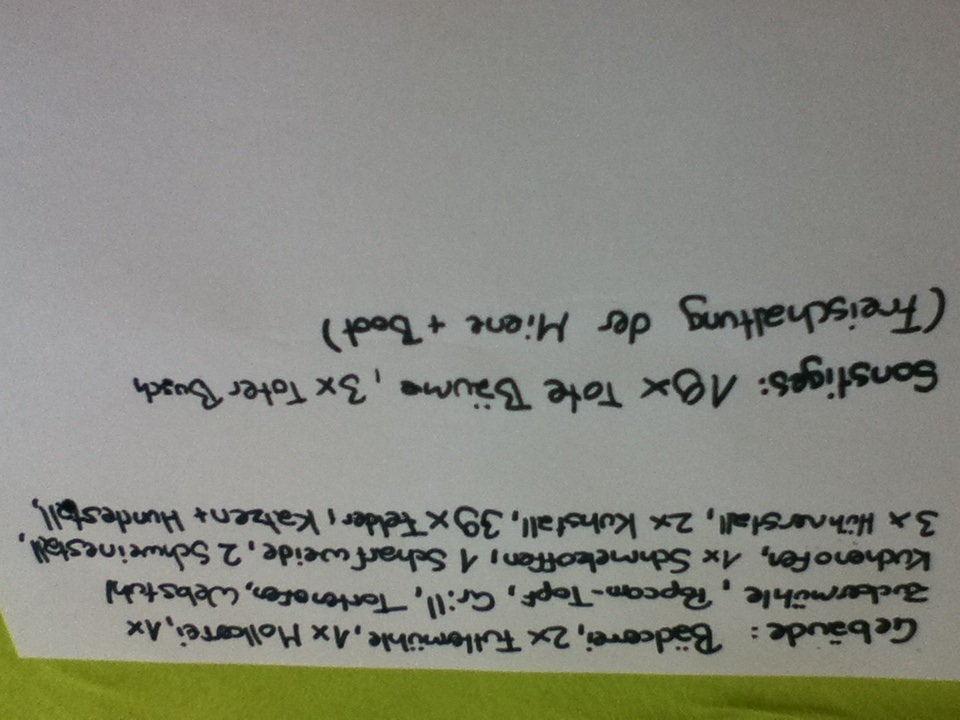 Gebäude: Bäckerei, 2x Futtermühle, 1x Molkerei, 1x
Zuckermühle, Popcorn-Topf, Grill, Tortenofen, Webstuhl
Kuchenofen, 1x Schmelzoffen, 1 Scharfweide, 2 Schweinestall,
3x Hühnerstall, 2x Kuhstall, 39x Felder, Katzen + Hundestall,
Sonstiges: 18x Tote Bäume, 3x Toter Busch
(Freischaltung der Miene + Boot)